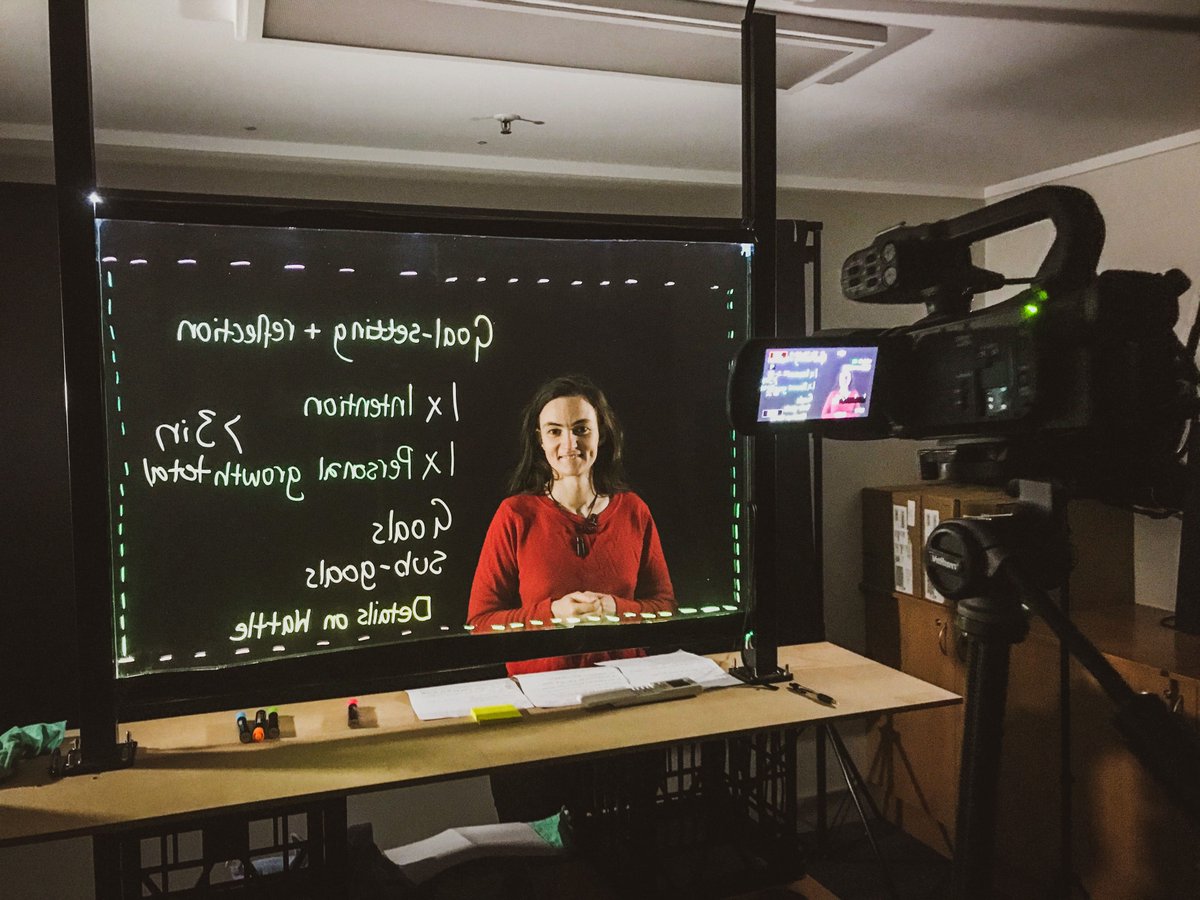 Goal-setting + reflection
1 x Intention
1 x Personal growth
>3 in
total
Goals
sub-goals
Details on Wattle
Velbon